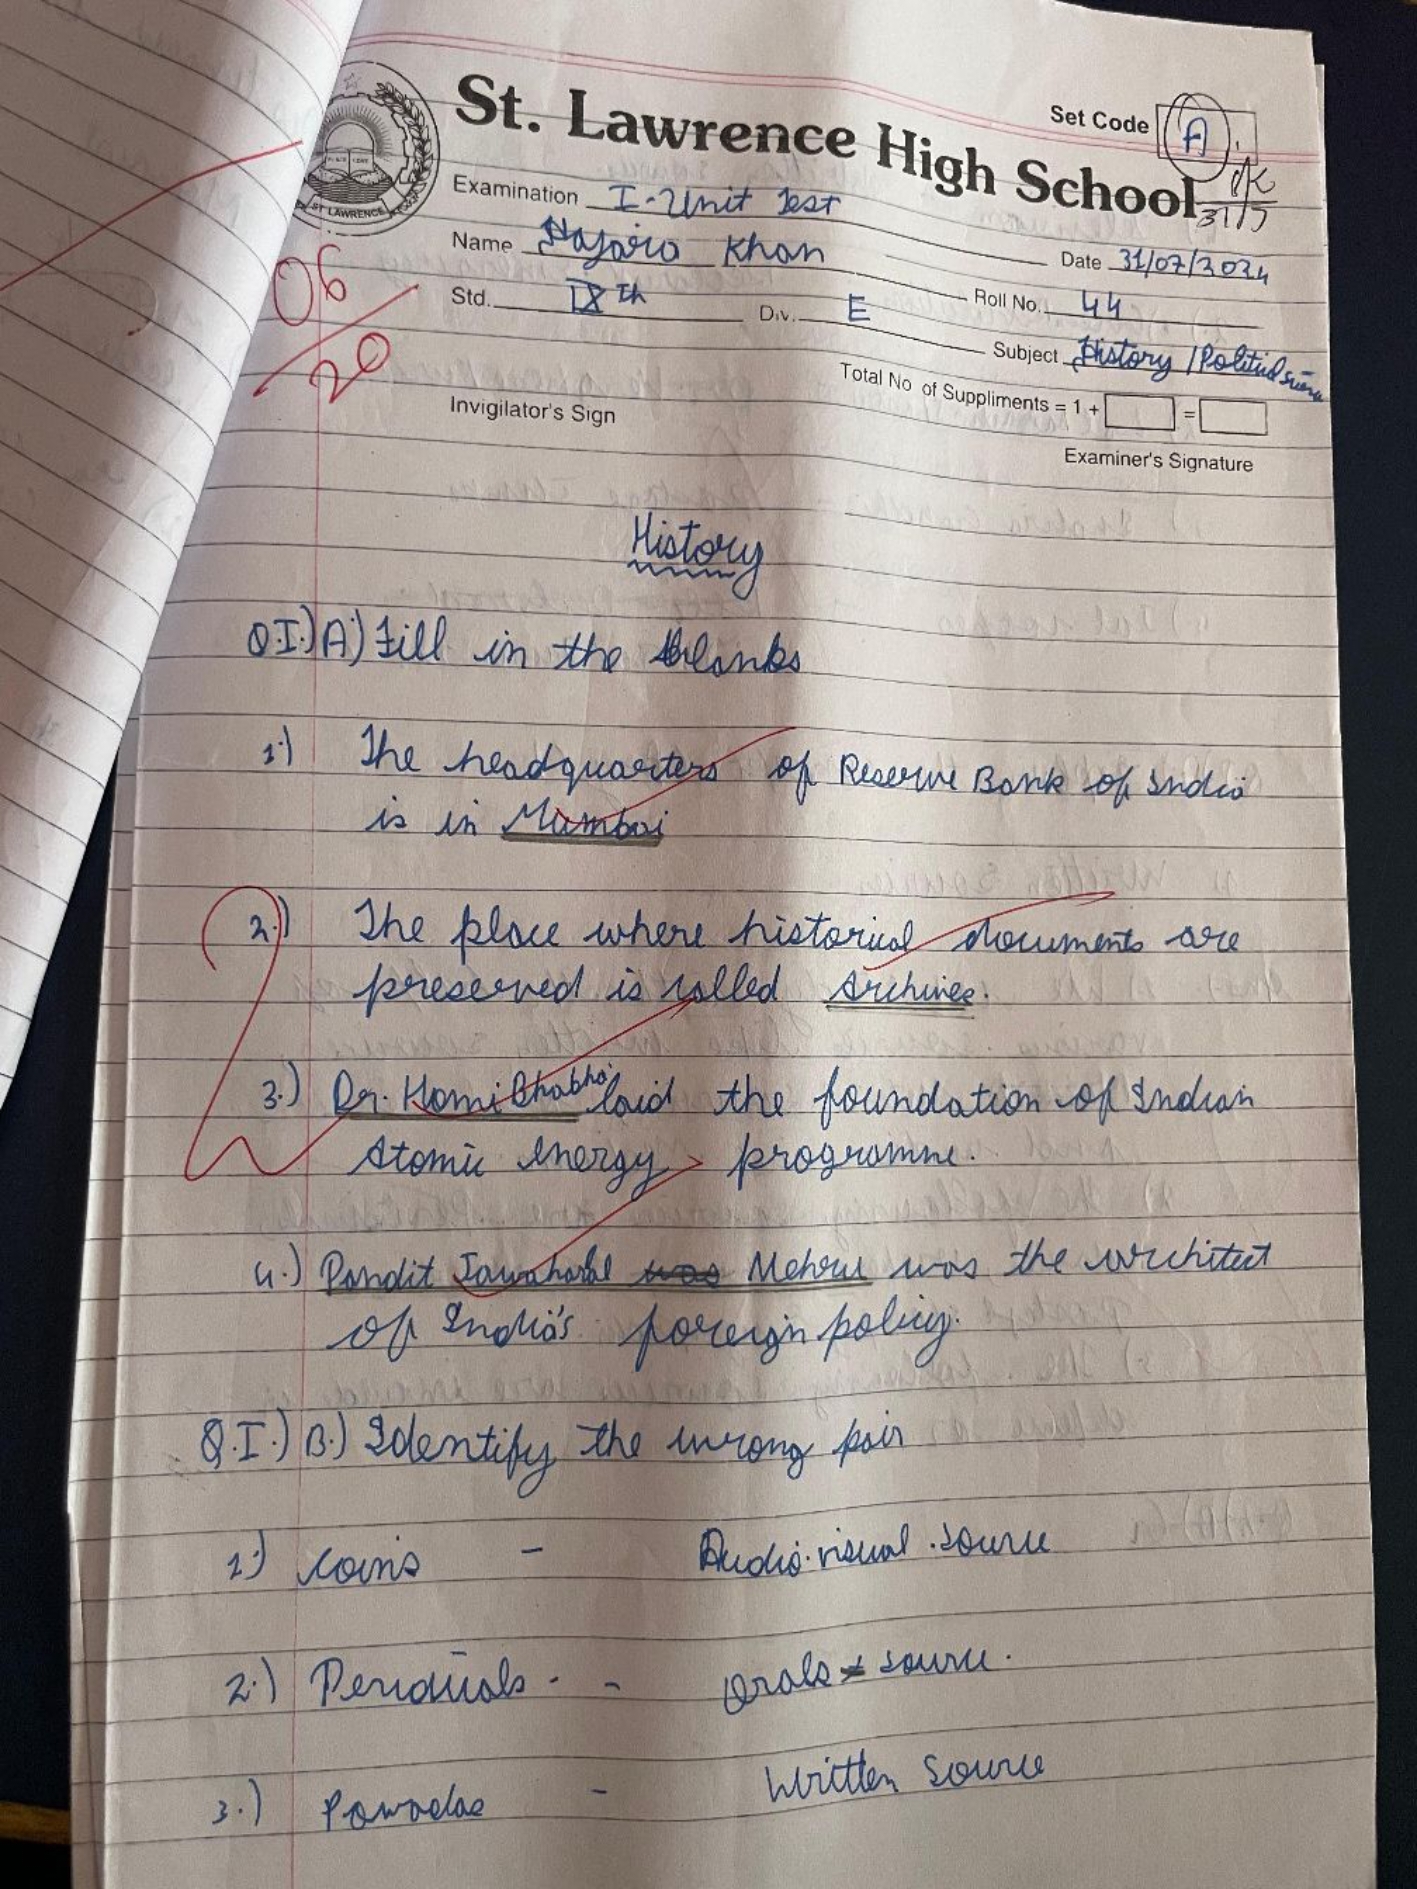 St. Lawrence High School
Set Code A
31/7
ST LAWRENCE
Examination I-Unit Test
Name Hajara Khan
Date 31/07/2024
Std. IXth
Div. E
Roll No. 44
Subject History / Political
06
20
Total No of Suppliments = 1 + =
Invigilator's Sign
Examiner's Signature
History
Q.I.) A.) Fill in the blanks
1.) The headquarters of Reserve Bank of India
is in Mumbai
2.) The place where historical documents are
preserved is called Archives.
3.) Dr. Homi Bhabha laid the foundation of Indian
Atomic energy programme.
4.) Pandit Jawaharlal was Nehru was the architect
of India's foreign policy.
Q.I.) B.) Identify the wrong pair
1.) coins - Audio.visual.source
2.) Periduals - Orals source.
3.) Powadas - Written source